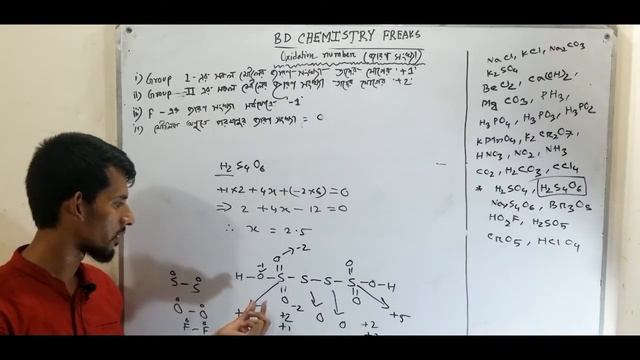 BD CHEMISTRY FREAKS
Oxidation number (জারণ সংখ্যা)
i) Group I-এর সকল মৌলের জারণ সংখ্যা তাদের যৌগে '+1'
ii) Group-II এর সকল মৌলের জারণ সংখ্যা তাদের যৌগে '+2'
iii) F-এর জারণ সংখ্যা সর্বদা '-1'
iv) মৌলিক অণুতে পরমাণুর জারণ সংখ্যা = 0
H2S4O6
+1×2 + 4x + (-2×6) = 0
⇒ 2 + 4x - 12 = 0
∴ x = 2.5
O → -2
-1 O O
H - O - S - S - S - S - O - H
O -2 O
0 0 +5
+2 +2
+1
S - S
O - O
F - F
NaCl, KCl, Na2CO3
K2SO4
BeCl2, Ca(OH)2,
MgCO3, PH3,
H3PO4, H3PO3, H3PO2
KMnO4, K2Cr2O7,
HNO3, NO2, NH3
CO2, H2CO3, CCl4
* H2SO4, H2S4O6
Na2S4O6, Br3O8
HO2F, H2SO5
CrO5, HClO4